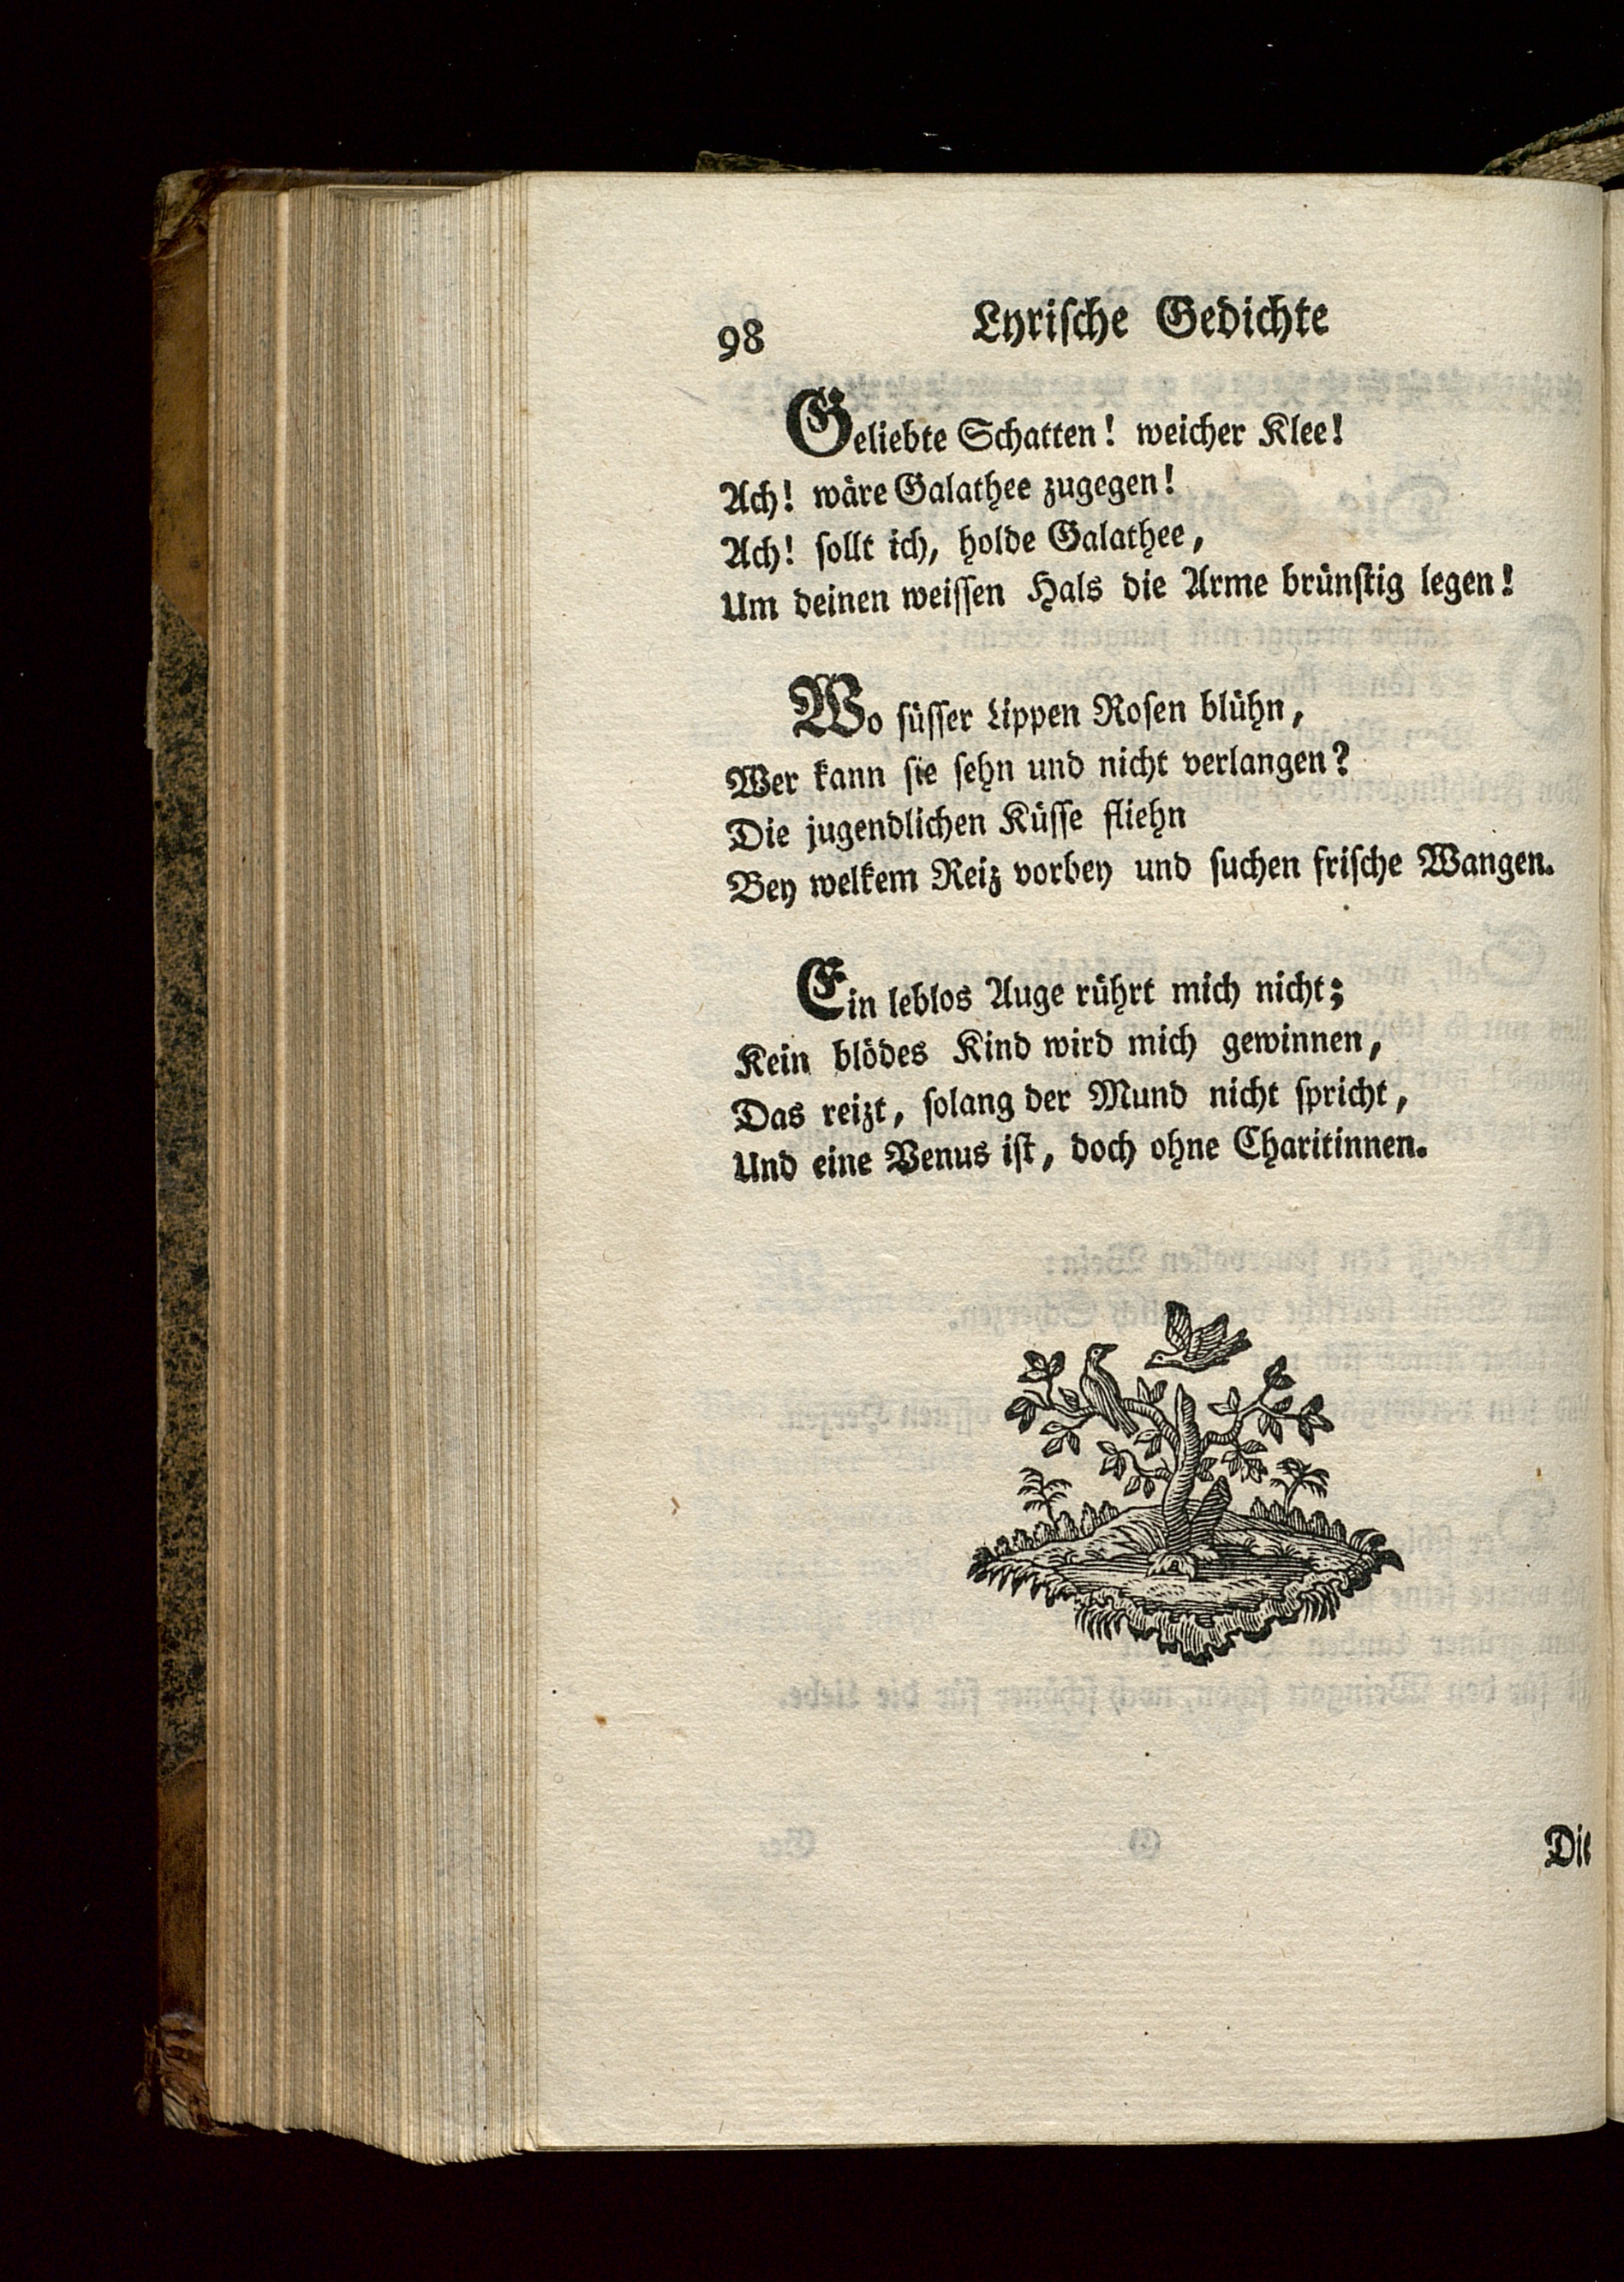 98 Lyrische Gedichte
Geliebte Schatten! weicher Klee!
Ach! wäre Galathee zugegen!
Ach! sollt ich, holde Galathee,
Um deinen weissen Hals die Arme brünstig legen!
Wo süsser Lippen Rosen blühn,
Wer kann sie sehn und nicht verlangen?
Die jugendlichen Küsse fliehn
Bey welkem Reiz vorbey und suchen frische Wangen.
Ein leblos Auge rührt mich nicht;
Kein blödes Kind wird mich gewinnen,
Das reizt, solang der Mund nicht spricht,
Und eine Venus ist, doch ohne Charitinnen.
Die